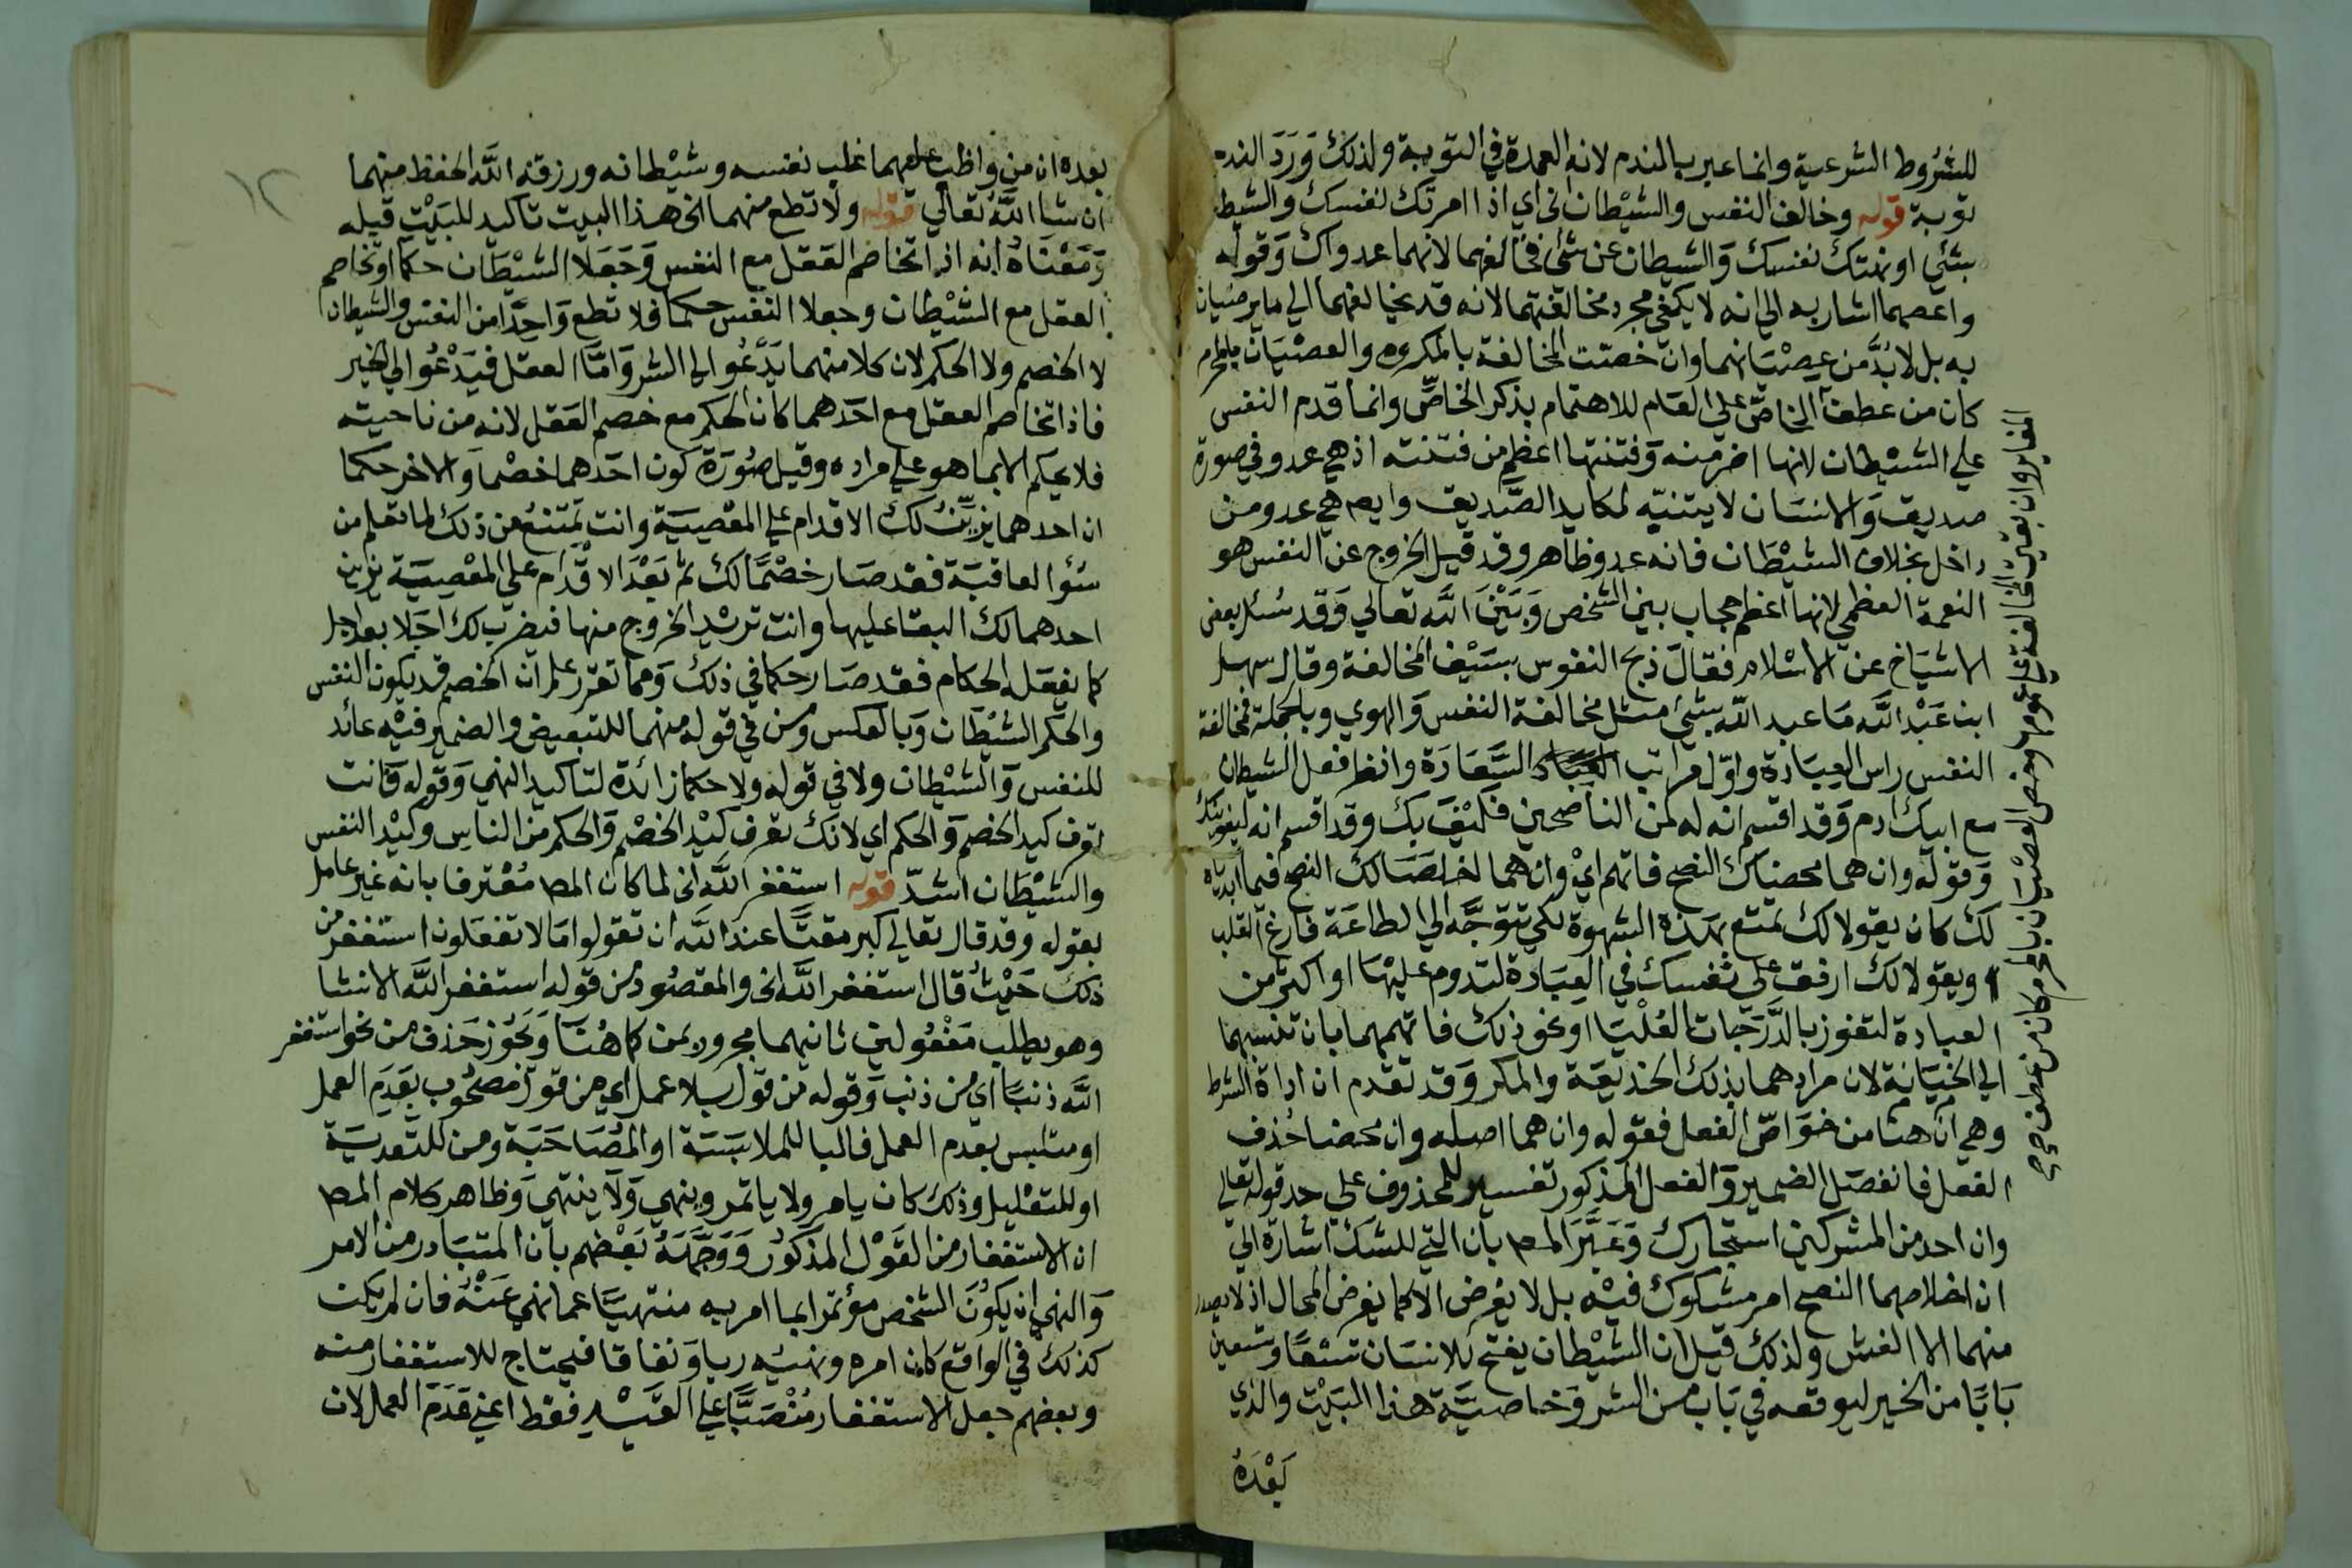 للشروط الشرعية وانما عبر بالندم لانه العمدة في التوبة ولذلك وَرَدَ الندم
توبة قوله وخالف النفس والشيطان الخ اي اذا امرتك نفسك والشيطان
بشئ او نهتك نفسك وَالشيطان عن شئ فخالفهما لانهما عدواك وَقوله
واعصهما اشار به الي انه لا يكفي مجرد مخالفتهما لانه قد يخالفهما الي ما يرضيان
به بل لابُدَّ من عِصْيَانهما وان خصت المخالفة بالمكروه والعصْيَان بالمحرم
كان من عطف الخاصّ علي العَام للاهتمام بذكر الخاصّ وانما قدم النفس
علي الشيْطان لانها اضر منه وَفتنتها اعظم من فتنته اذ هي عدو في صورة
صديق وَالانسَان لا يتنبّه لمكايد الصَّديق وايضا هي عدو من
داخل بخلاف الشيْطَان فانه عدو ظاهر وقد قيل الخروج عن النفس هو
النعمة العظمي لانها اعظم حجاب بين الشخص وَبَيْنَ الله تعالي وَقد سُئل بعض
الاشيَاخ عن الاسْلام فقالَ ذبح النفوس بسَيْف المخالفة وقال سهل
ابن عَبْد الله مَا عبد الله بشئ مثل مخالفة النفس وَالهوي وبالجملة فمخالفة
النفس راس العِبَادة واوّل مراتب السَّعَادَة وانظر فعل الشيطان
مع ابيك ادم وَقد اقسم انه له لمن الناصحين فَكيْفَ بك وقد اقسم انه ليغوينك
وَقوله وان هما محضاك النصح فاتهم ايْ وان هما اخلصَا لك النصح فيما ابدياه
لك كان يقولا لك تمتع بهذه الشهوة لكي تتوجَّه الي الطاعَة فارغ القلب
او يقولا لك ارفق علي نفسك في العِبَادة لتدوم عليْهَا او اكثر من
العبادة لتفوز بالدَّرَجات العُلْيَا او نحو ذلك فاتهمهما بان تنسبهما
الي الخيَانة لان مرادهما بذلك الخديعَة والمكر وَقد تقدم ان اداة الشرط
وهي ان هنا من خوَاصّ الفعل فقوله وان هما اصله وان محضا حُذف
الفعل فانفصَل الضمير وَالفعل المذكور تفسير للمحذوف علي حد قوله تعالي
وان احد من المشركين استجارك وَعَبَّرَ المصـ بان التي للشك اشارة الي
ان اخلاصهما النصح امر مشكوك فيْه بل لا يُفرض الا كما يفرض المحال اذ لا يصدر
منهما الا الغش ولذلك قيل ان الشيْطان يفتح للانسَان تسْعًا وتسعين
بَابًا من الخير ليوقعه في بَاب من الشر وَخاصيَّة هذا البَيْت والذي
بَعْدَهُ
المغاير وان بقيت المخالفة علي عمومها وخص العصْيَان بالمحرم كان من عطف
١٢
بعده ان من واظب عليهما غلب نفسه وشيْطانه ورزقه الله الحفظ منهما
ان شا اللهُ تعالي قوله ولا تطع منهما الخ هذا البيت تاكيد للبَيْت قبله
وَمَعْنَاهُ انه اذا تخاصَم العَقل مع النفس وَجَعَلا الشيْطَان حكما او تخاصم
العقل مع الشيْطان وجعلا النفس حكما فلا تطع وَاحِدًا من النفس والشيطان
لا الخصم ولا الحكم لان كلا منهما يَدْعُو الي الشر وَامَّا العقل فيَدْعُو الي الخير
فاذا تخاصم العقل مع احَدهما كان الحكم مع خصم العَقل لانه من ناحيته
فلا يحكم الا بما هو علي مراده وقيل صُورَة كون احَدهما خصْما وَالاخر حكما
ان احدهما يزيّنُ لك الاقدام علي المعْصِيَة وانت تمتنعُ من ذلك لما تعلم من
سُوُ العاقبَة فقد صَار خصْمًا لك ثم بَعْدَ الاقْدَام علي المعْصِيَة يزين
احدهما لك البقا عليها وانت تريْد الخروج منها فيضرب لك اجَلا بعد اجل
كما يفعَله الحكام فقد صَار حكما في ذلك وَمما تقرر علم ان الخصم قد يكون النفس
والحكم الشيْطَان وَبالعكس ومن في قوله منهما للتبعيض والضمير فيْه عائد
للنفس وَالشيْطان ولا في قوله ولا حكما زائدة لتاكيد النهي وَقوله فانت
تعرف كيد الخصم وَالحكم اي لانك تعرف كيْد الخصْم وَالحكم من الناس وكيْد النفس
والشيْطَان اشدّ قوله استغفر الله الخ لما كان المصـ مُعْترفا بانه غير عامل
بقوله وقد قال تعالي كبر مقتًا عند الله ان تقولوا مَا لا تفعَلون استغفر من
ذلك حَيْثُ قال استغفر الله الخ والمقصُود من قوله استغفر الله الانشا
وهو يطلب مَفْعُولين ثانيهما مجرور بمن كما هُنَا وَيَجُوز حَذف من نحو استغفر
الله ذنبًا اي من ذنب وَقوله من قول بلا عمل اي من قول مصْحُوب بعَدَم العمل
او متلبس بعدم العمل فالبا للملابَسَة او المُصَاحَبَة ومن للتعديَة
او للتعْليل وذلك كان يامر ولا ياتمر وينهي وَلا ينتهي وَظاهر كلام المصـ
ان الاستغفار من القَوْل المذكوُر وَوَجَّهَهُ بَعْضهم بان المتبَادر من الامر
وَالنهي ان يكوُنَ الشخص مؤتمرا بما امر به منتهيًا عما نهي عَنْهُ فان لم يكن
كذلك في الواقع كان امره ونهيُه ريا وَنفاقا فيحتاج للاستغفار منه
وبعضهم جعل الاستغفار مُنْصَبًّا علي القيْد فقط اعني عَدَمَ العمل لان